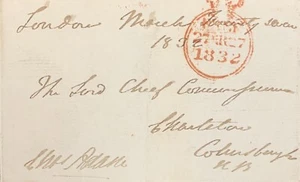 London March twenty seven
1832
27 MR 27
1832
The Lord Chief Commissioner
Charleton
Colinsburgh
N B
Chas Adam